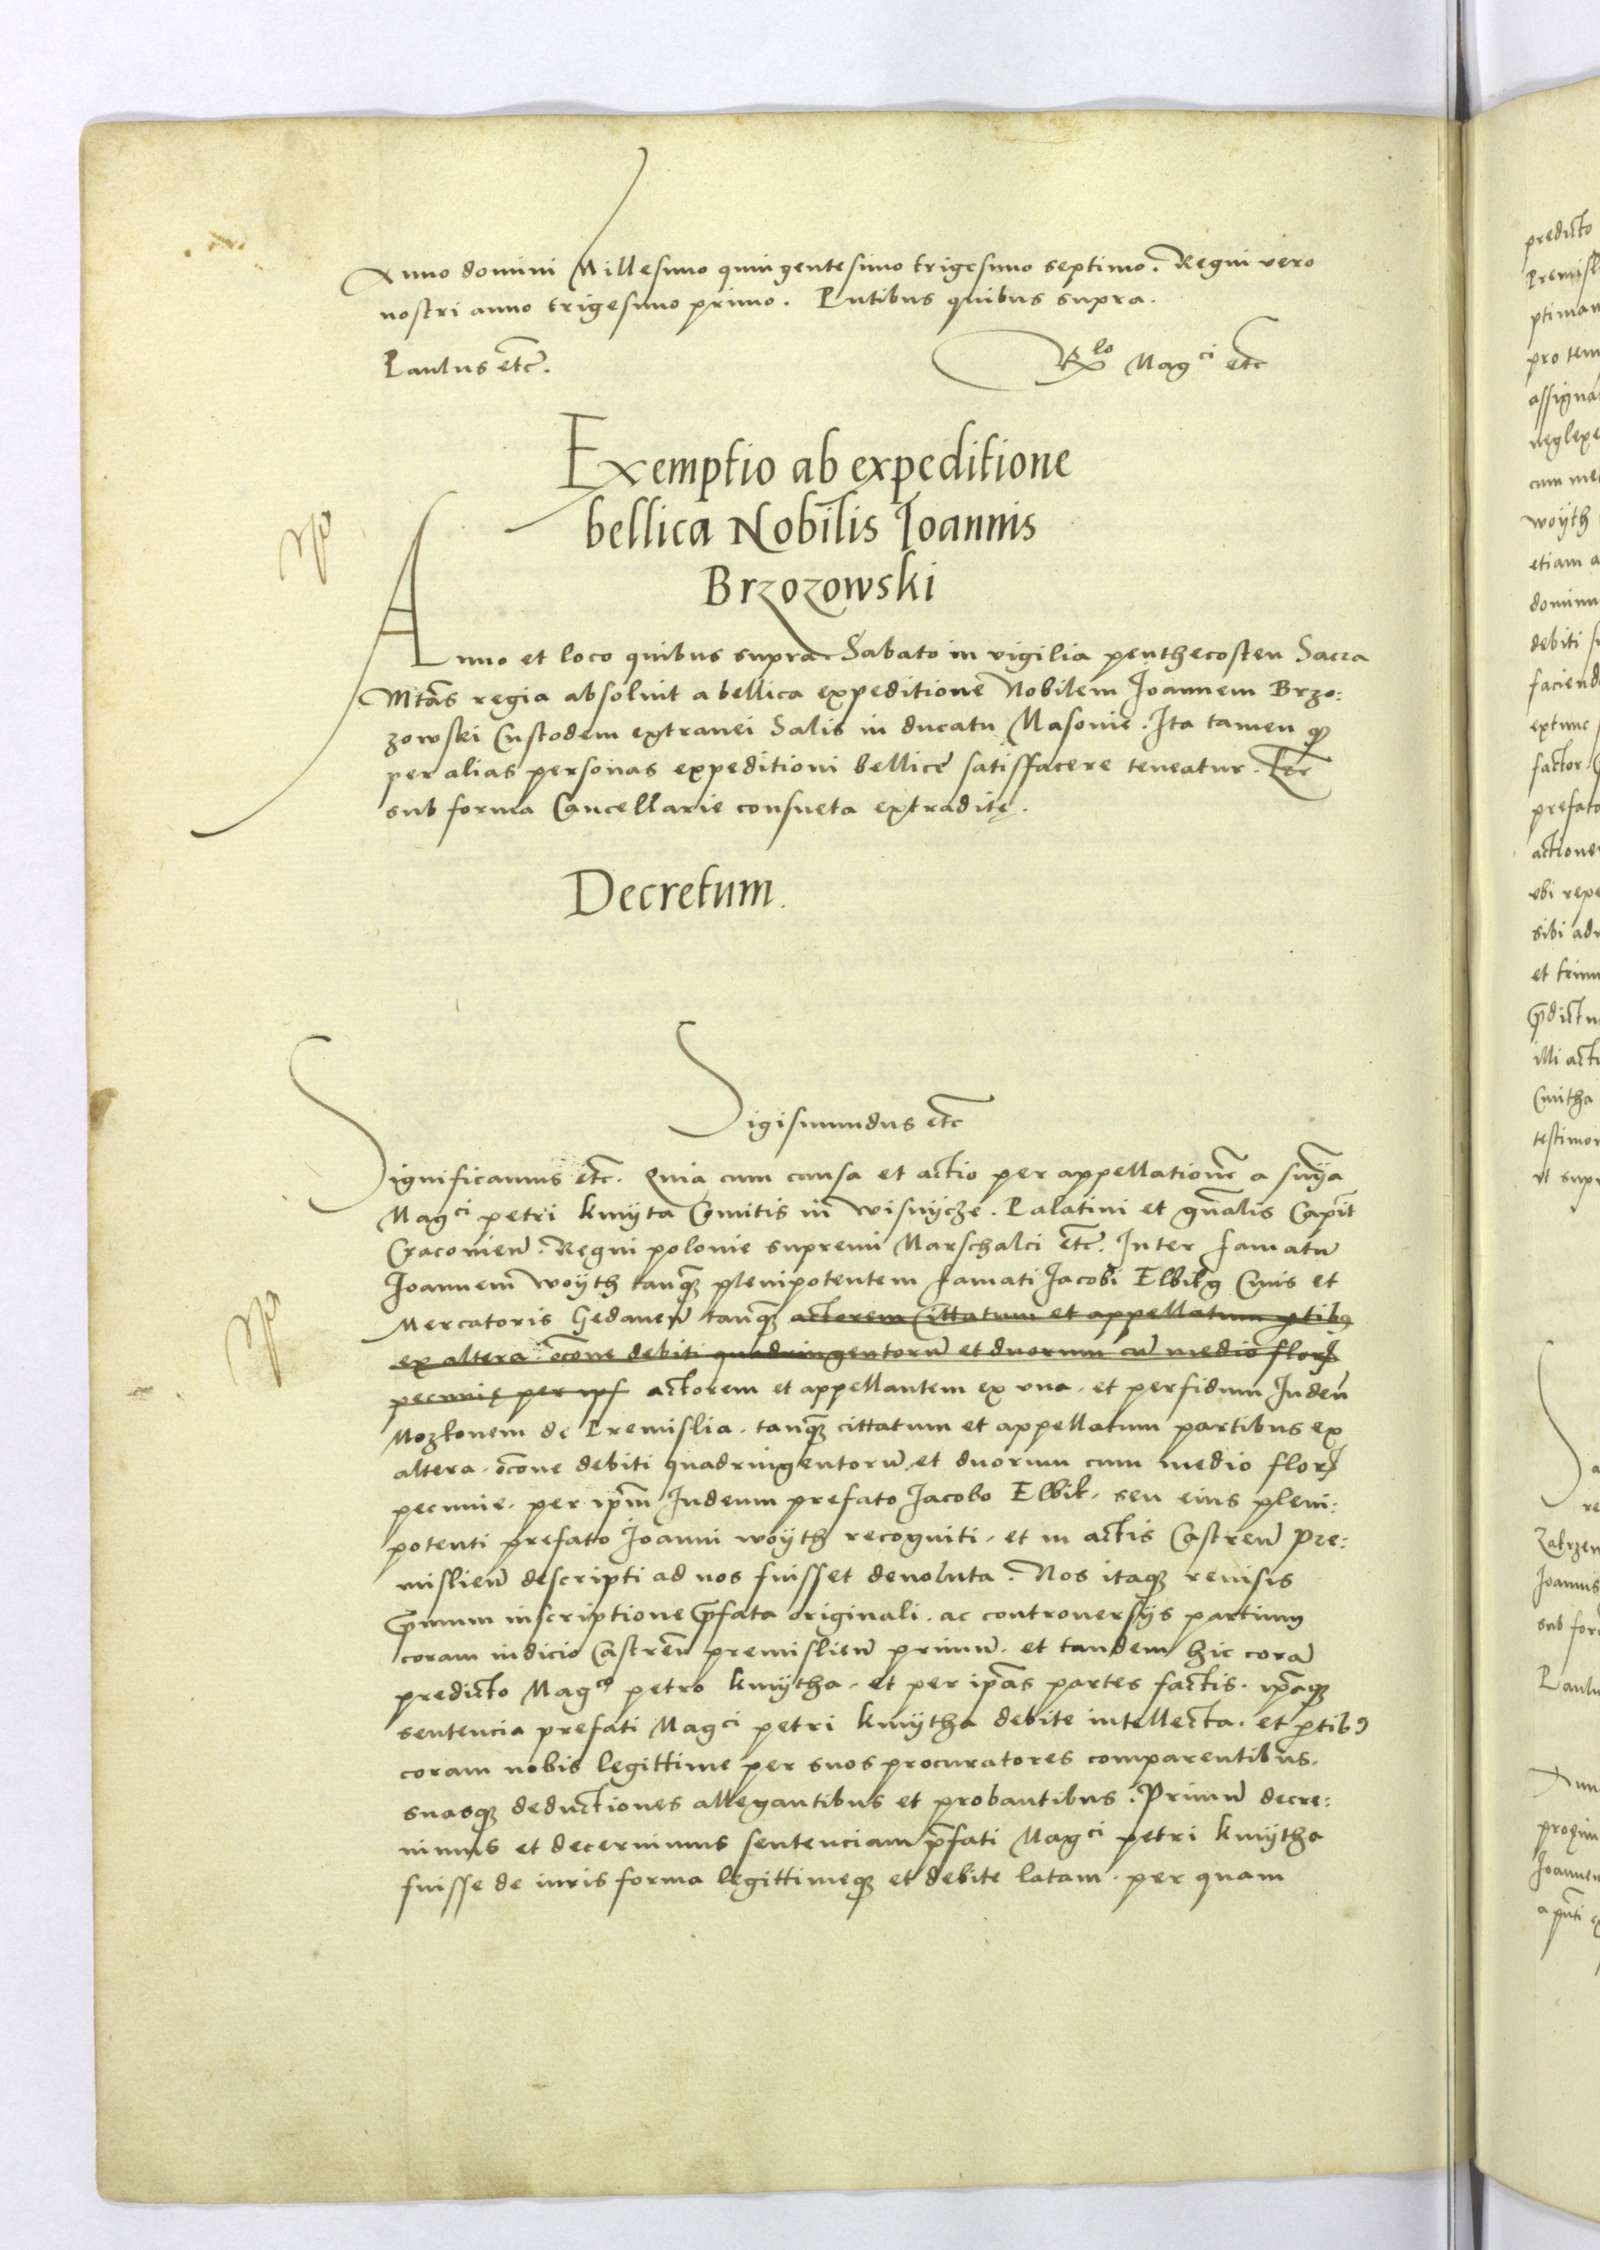 Anno domini Millesimo quingentesimo trigesimo septimo. Regni vero
nostri anno trigesimo primo. Pntibus quibus supra.
Paulus etc̄.
Rlo Magci etc
Exemptio ab expeditione
bellica Nobilis Ioannis
Brzozowski
Anno et loco quibus supra. Sabato in vigilia penthecosten Sacra
Mtas regia absolvit a bellica expeditione Nobilem Joannem Brzo:
zowski Custodem extranei Salis in ducatu Masovie. Ita tamen qȝ
per alias personas expeditioni bellice satisfacere teneatur.
sub forma Cancellarie consueta extradite.
Decretum.
Sigismundus etc
Significamus etc. Quia cum causa et actio per appellatione a
Magci petri kmÿta Comitis in wisnÿcze. Palatini et gnalis Capit
Cracovien̄. Regni polonie supremi Marschalci etc. Inter famatū
Joannem woÿth tanqȝ plenipotentem famati Jacobi Elbikg Civis et
Mercatoris Gedanen̄ tanqȝ actorem Cittatum et appellatum ptibȝ
ex altera. ōcone debiti quadringentorū et duorum cū medio flor
pecunie per ipm̄ actorem et appellantem ex una. et perfidum Judeū
Mozkonem de Premislia. tanqȝ cittatum et appellatum partibus ex
altera. ōcone debiti quadringentorū et duorum cum medio flor
pecunie. per ipm̄ Judeum prefato Jacobo Elbik. seu eius pleni:
potenti prefato Joanni woÿth recogniti. et in actis Castren̄ Pre:
mislien̄ descripti ad nos fuisset devoluta. Nos itaqȝ revisis
p̄mum inscriptione p̄fata originali. ac controversÿs partium
coram iudicio Castren̄ premislien̄ primū. et tandem hic corā
predicto Magco petro kmÿtha. et per ip̄as partes factis. ip̄aqȝ
sentencia prefati Magci petri kmÿtha debite intellecta. et ptibȝ
coram nobis legittime per suos procuratores comparentibus.
suasqȝ deductiones allegantibus et probantibus. Primū decre:
vimus et decernimus sentenciam p̄fati Magci petri kmÿtha
fuisse de iuris forma legittimeqȝ et debite latam. per quam